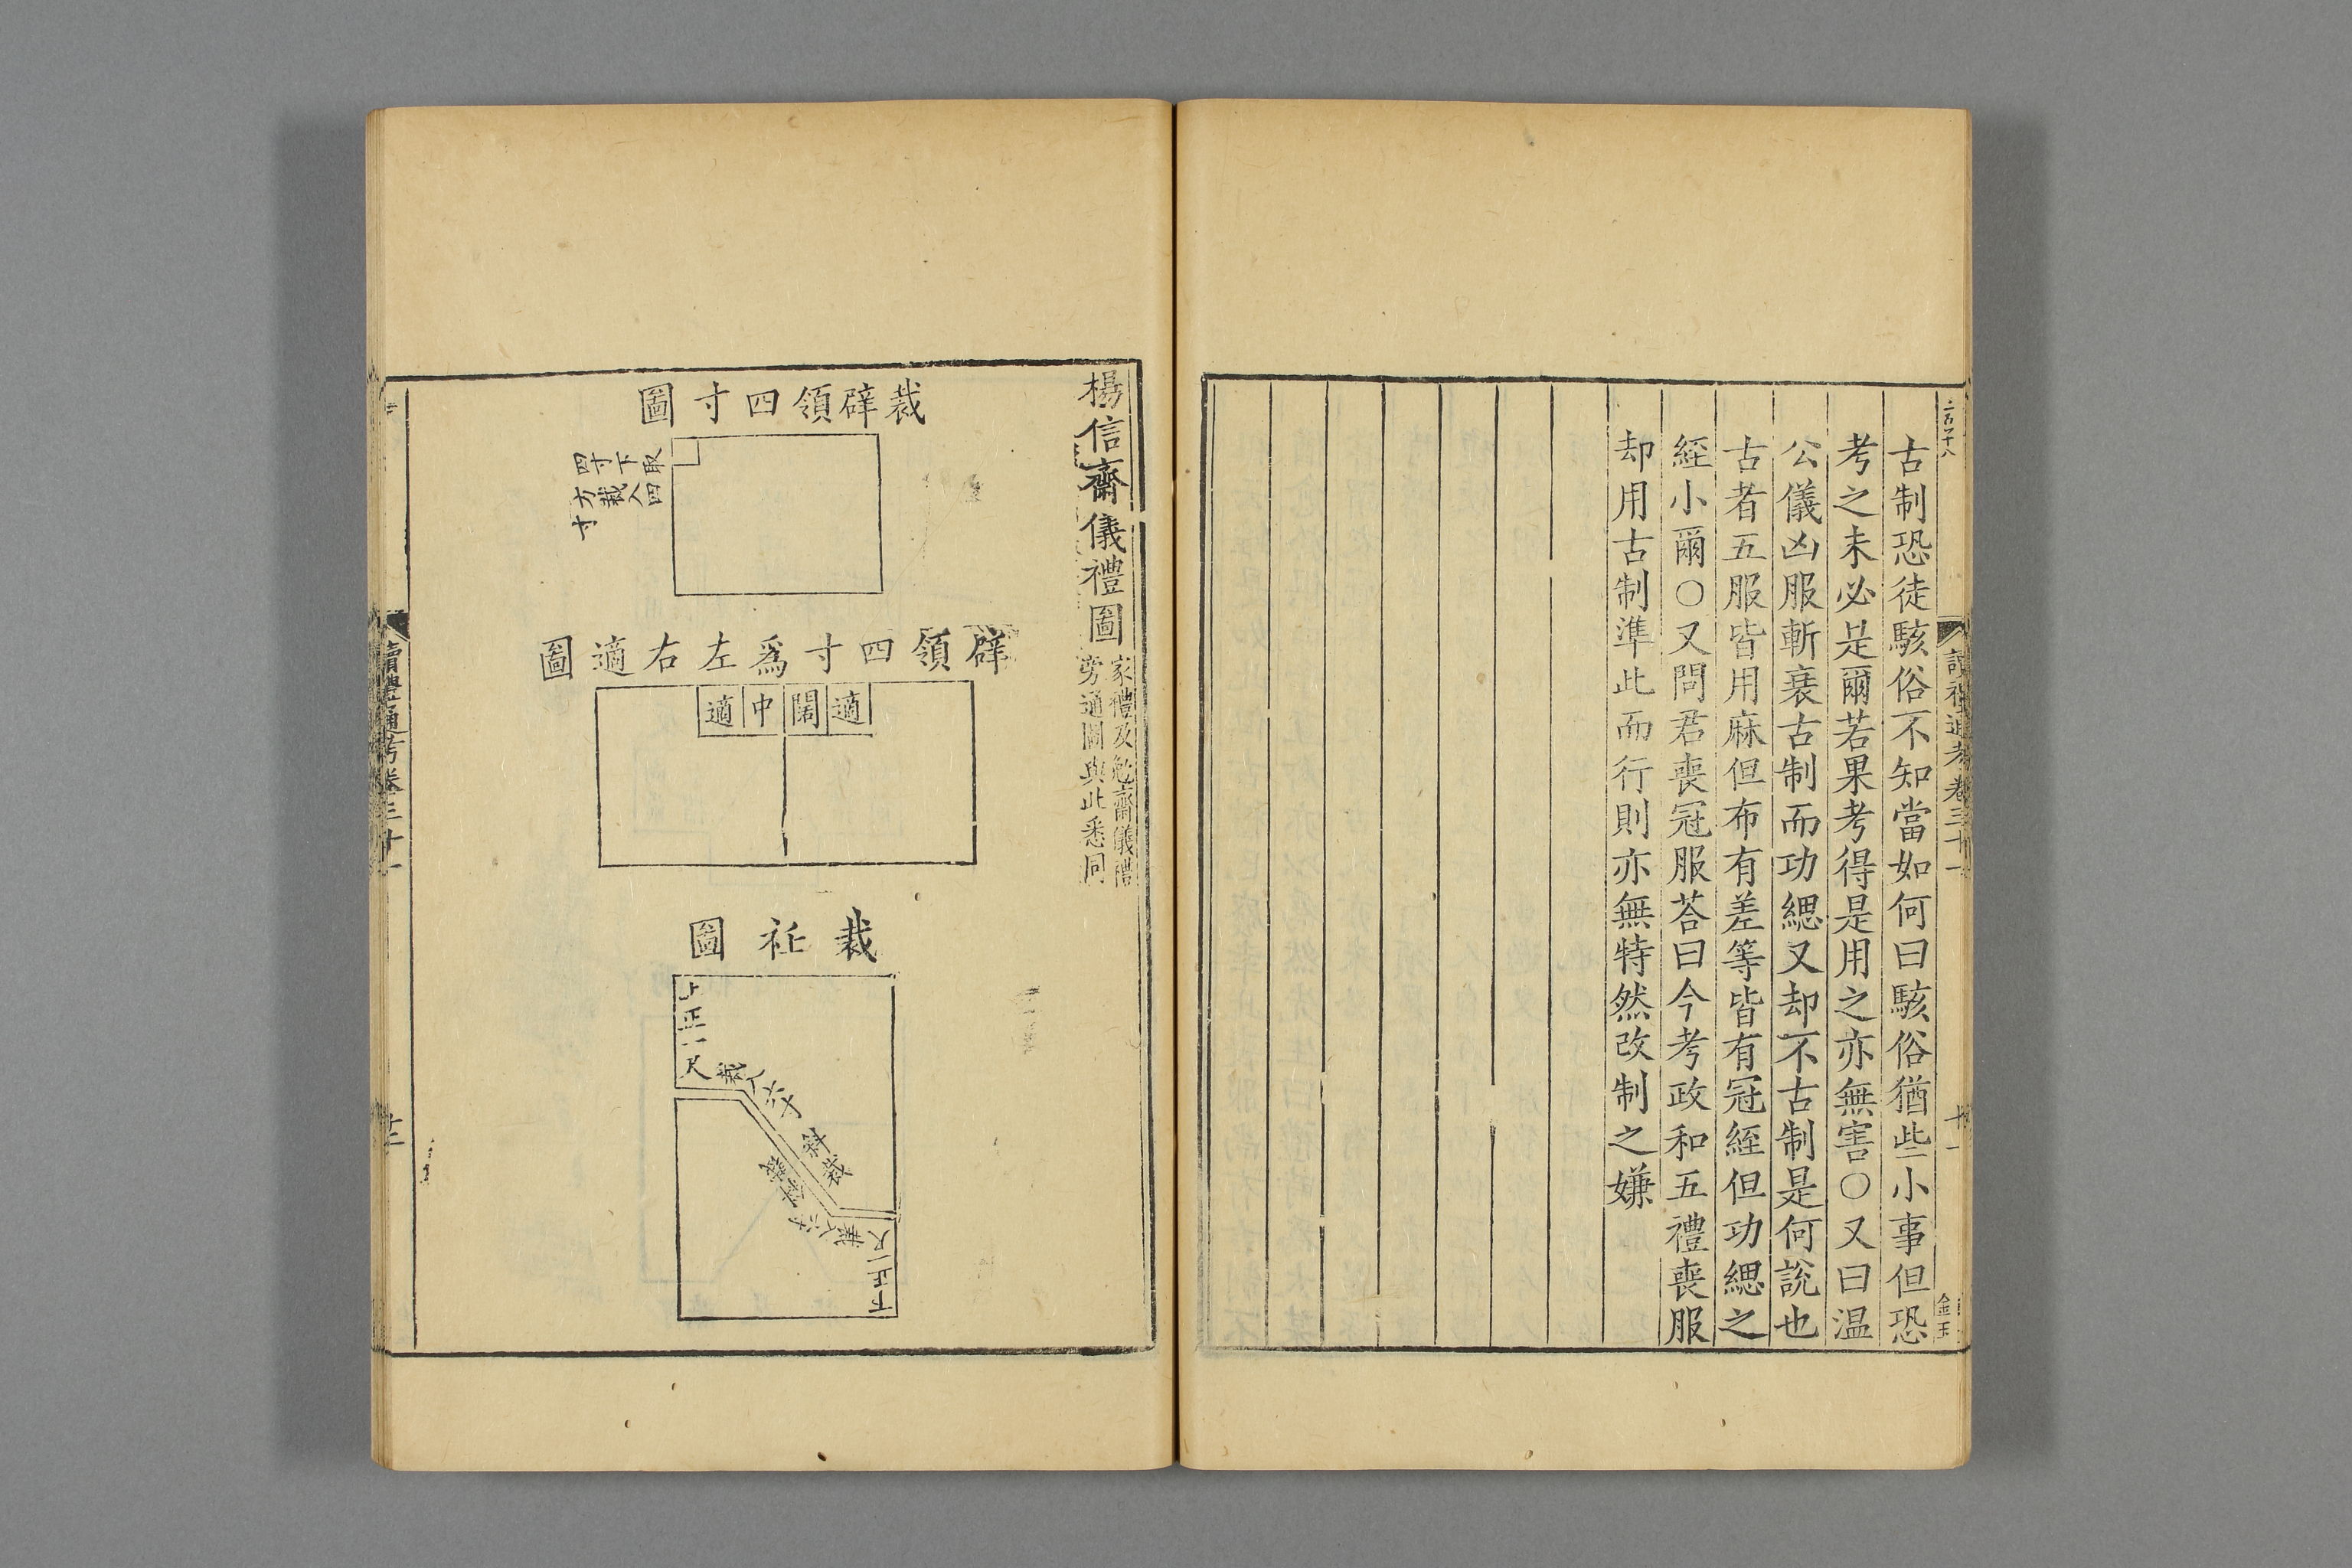 讀禮通考卷三十一
十一
金玉
古制恐徒駭俗不知當如何曰駭俗猶些小事但恐
考之未必是爾若果考得是用之亦無害〇又曰温
公儀凶服斬衰古制而功緦又却不古制是何說也
古者五服皆用麻但布有差等皆有冠絰但功緦之
絰小爾〇又問君喪冠服荅曰今考政和五禮喪服
却用古制準此而行則亦無特然改制之嫌
楊信齋儀禮圖
家禮及勉齋儀禮
旁通圖與此悉同
裁辟領四寸圖
取四
下入
寸裁
四方寸
辟領四寸爲左右適圖
適
闊
中
適
裁衽圖
上正一尺
裁入六寸
斜裁
斜裁
裁入六寸
下正一尺
讀禮通考卷三十一
十二